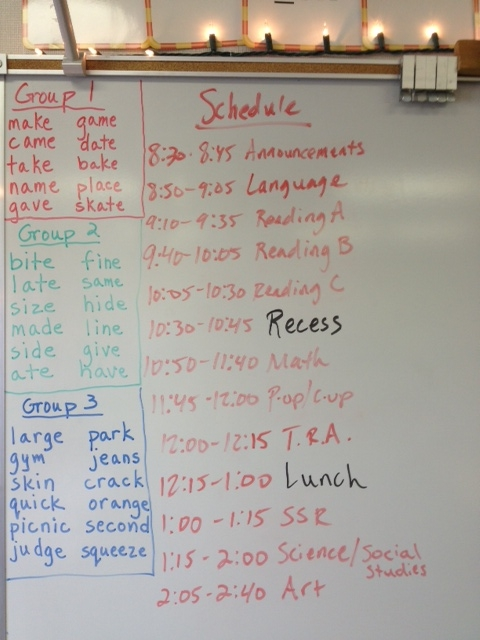 Group 1
make game
came date
take bake
name place
gave skate
Group 2
bite fine
late same
size hide
made line
side give
ate have
Group 3
large park
gym jeans
skin crack
quick orange
picnic second
judge squeeze
Schedule
8:30-8:45 Announcements
8:50-9:05 Language
9:10-9:35 Reading A
9:40-10:05 Reading B
10:05-10:30 Reading C
10:30-10:45 Recess
10:50-11:40 Math
11:45-12:00 P.up/C.up
12:00-12:15 T.R.A.
12:15-1:00 Lunch
1:00-1:15 SSR
1:15-2:00 Science/Social
Studies
2:05-2:40 Art